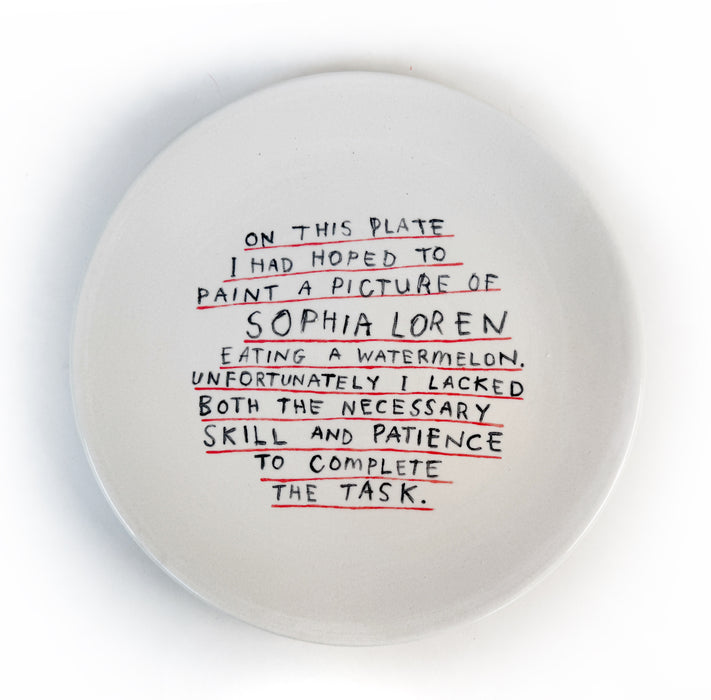 ON THIS PLATE
I HAD HOPED TO
PAINT A PICTURE OF
SOPHIA LOREN
EATING A WATERMELON.
UNFORTUNATELY I LACKED
BOTH THE NECESSARY
SKILL AND PATIENCE
TO COMPLETE
THE TASK.